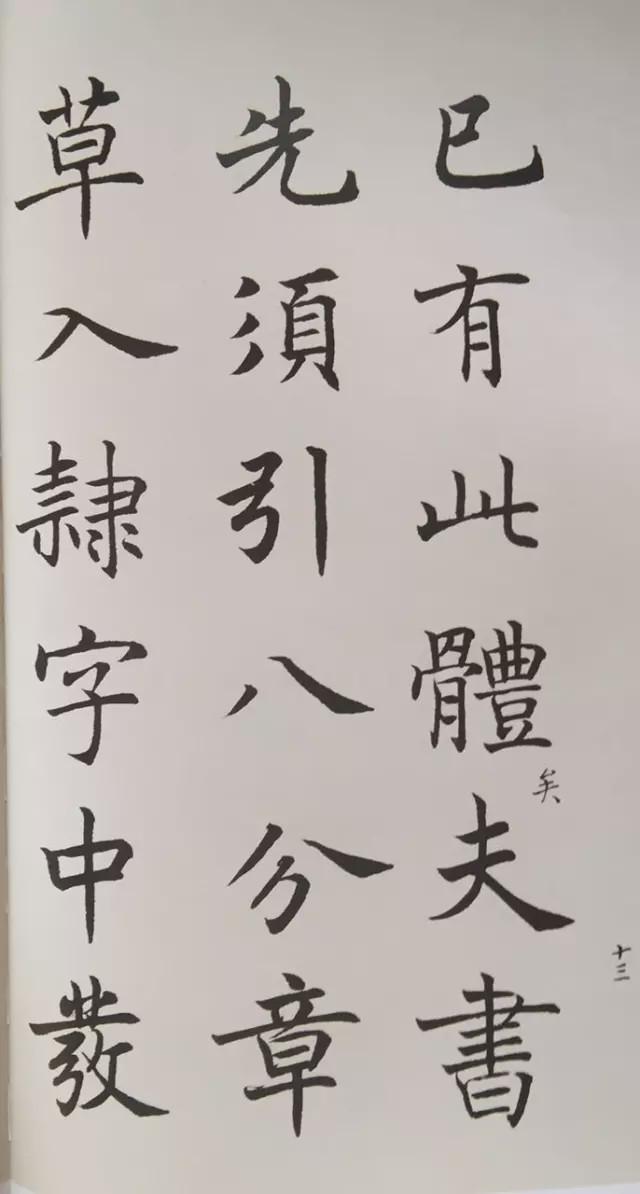 已有此體夫書
矣
先須引八分章
草入隸字中發
十三